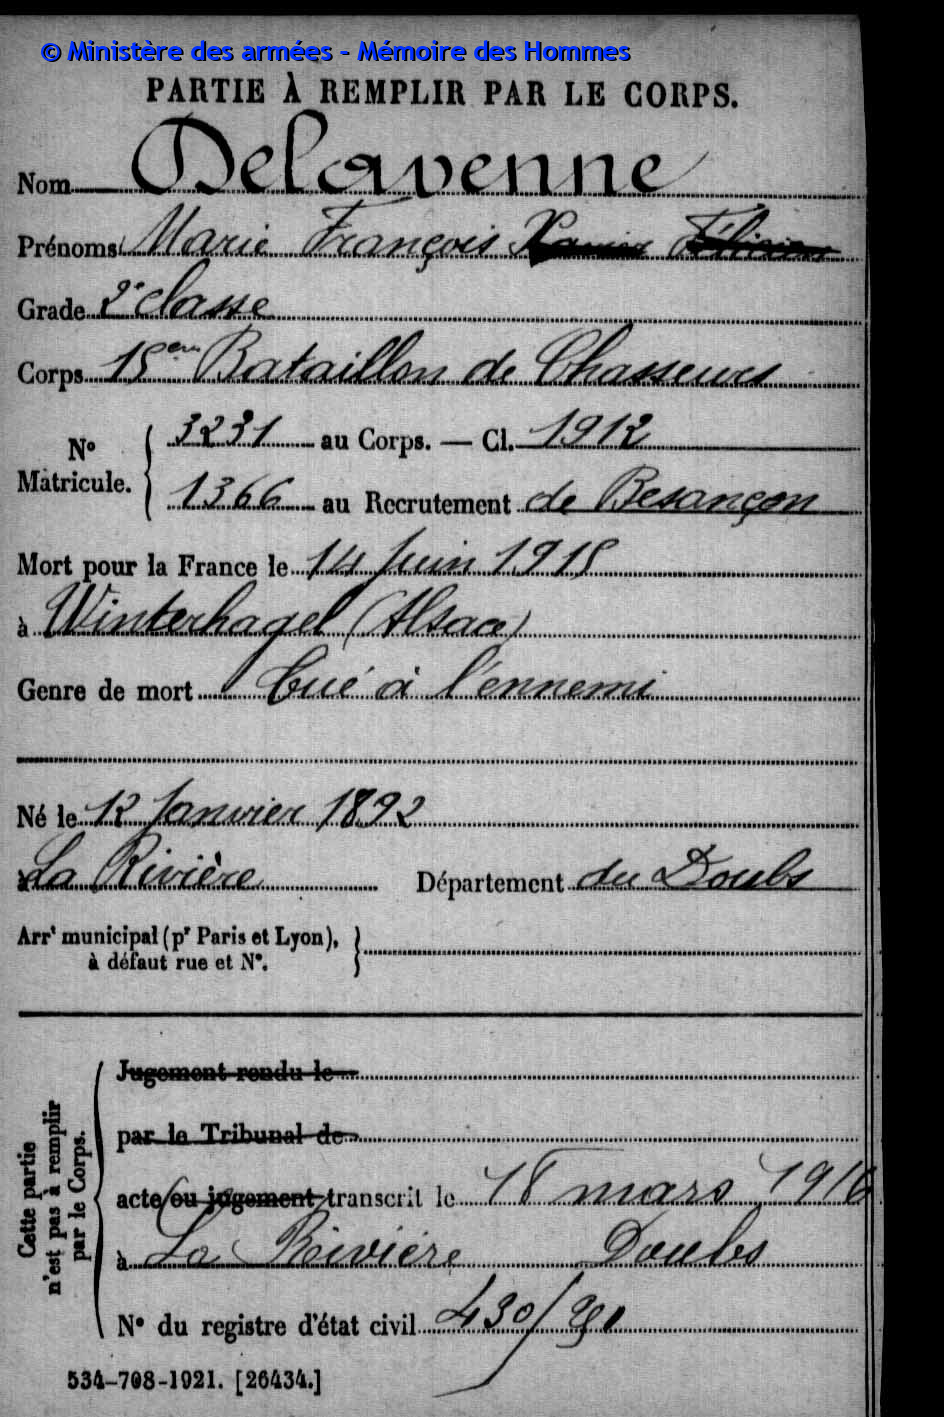 © Ministère des armées - Mémoire des Hommes
PARTIE À REMPLIR PAR LE CORPS.
Nom Delavenne
Prénoms Marie François Xavier Félicien
Grade 2e classe
Corps 15em Bataillon de Chasseurs
N° Matricule. { 3231 au Corps. — Cl. 1912
1366 au Recrutement de Besançon
Mort pour la France le 14 Juin 1915
à Winterhagel (Alsace)
Genre de mort Tué à l'ennemi
Né le 12 Janvier 1892
à La Rivière Département du Doubs
Arrt municipal (pr Paris et Lyon),
à défaut rue et N°.
Cette partie
n'est pas à remplir
par le Corps.
Jugement rendu le
par le Tribunal de
acte ou jugement transcrit le 18 mars 1916
à La Rivière Doubs
N° du registre d'état civil 430/
534-708-1921. [26434.]